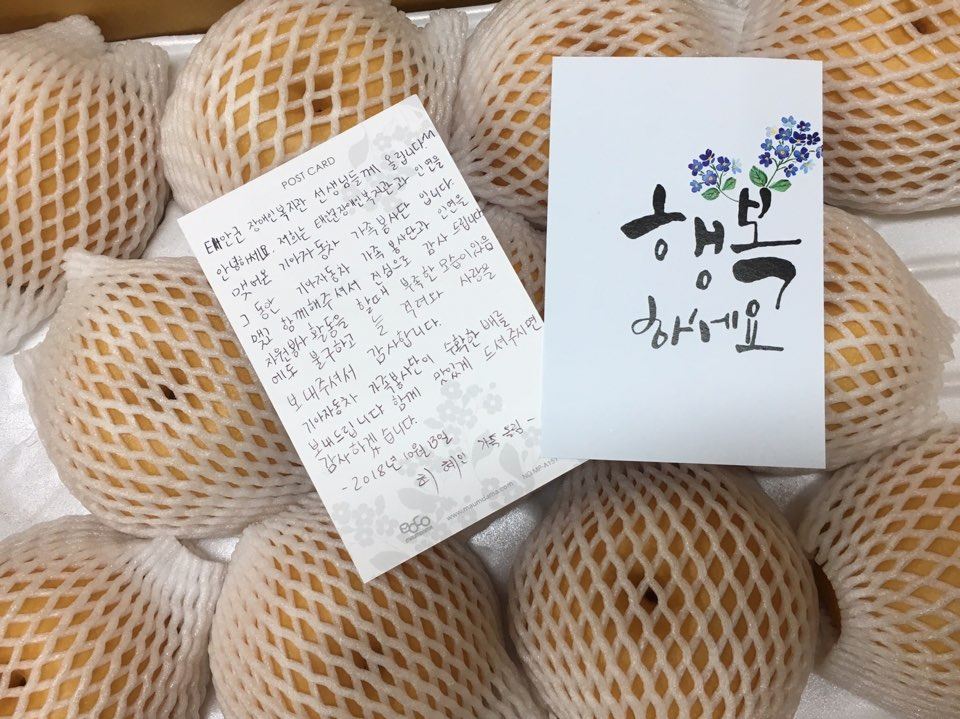 POST CARD
태안군 장애인복지관 선생님들께 올립니다^^
안녕하세요. 저희는 태안장애인복지관과 인연을
맺어온 기아자동차 가족봉사단 입니다.
그 동안 기아자동차 가족 봉사단과 인연을
맺고 함께해주셔서 진심으로 감사 드립니다
자원봉사 활동을 할때 부족한 모습이 있음
에도 불구하고 늘 격려와 사랑을
보내주셔서 감사합니다.
기아자동차 가족봉사단이 수확한 배를
보내드립니다 함께 맛있게 드셔주시면
감사하겠습니다.
-2018년 10월 13일
혜인 가족 드림-
www.maumdama.com
행복
하세요